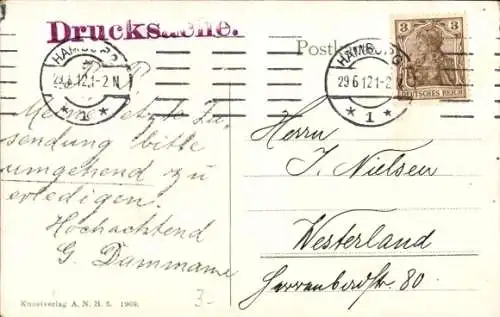 Drucksache.
Postkarte
HAMBURG
29.6.12.1-2N
* 1 *
HAMBURG
29.6.12.1-2
* 1 *
3 3
DEUTSCHES REICH
Meine letzte Zu-
sendung bitte
umgehend zu
erledigen.
Hochachtend
G. Dammann
Herrn
J. Nielsen
Westerland
Herrenbadstr. 80
Kunstverlag A. N. H. S. 1909.
3-